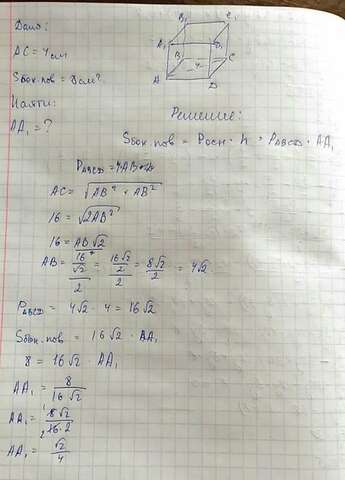 Дано:
AC = 4 см
Sбок.пов = 8 см²
Найти:
AA₁ = ?
B₁ C₁
A₁ D₁
B 4 C
A D
Решение:
Sбок.пов = Pосн · h = PABCD · AA₁
PABCD = 4AB
AC = √AB² + AB²
16 = √2AB²
16 = AB√2
AB = 16/√2 / 2 = 16√2/2 / 2 = 8√2/2 = 4√2
PABCD = 4√2 · 4 = 16√2
Sбок.пов = 16√2 · AA₁
8 = 16√2 · AA₁
AA₁ = 8/16√2
AA₁ = 8√2/16·2
AA₁ = √2/4